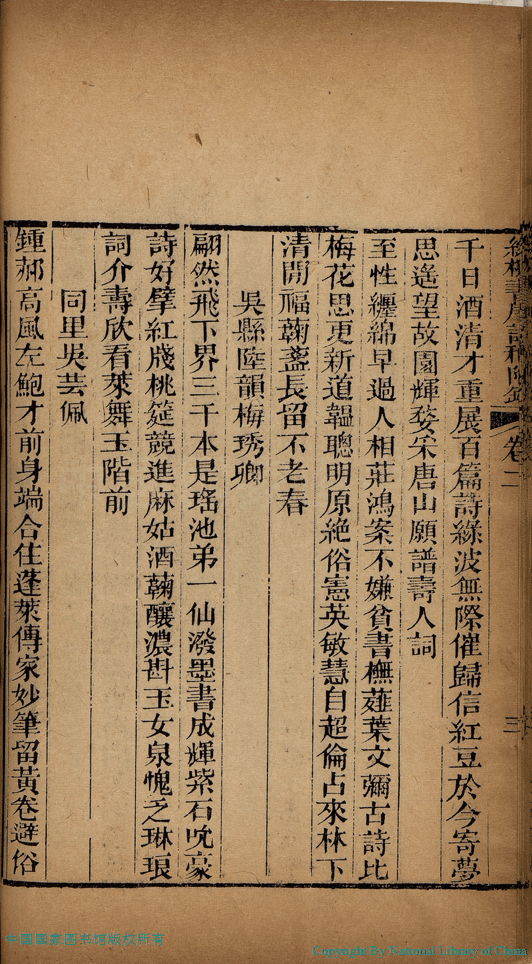 千日酒清才重展百篇詩綠波無際催歸信紅豆於今寄夢
思遙望故園輝婺宋唐山願譜壽人詞
至性纏綿早過人相莊鴻案不嫌貧書橅薤葉文彌古詩比
梅花思更新道韞聰明原絶俗憲英敏慧自超倫占來林下
清閒福蘜盞長留不老春
吳縣陸韻梅琇卿
翩然飛下界三千本是瑤池弟一仙潑墨書成輝紫石吮豪
詩好擘紅牋桃筵競進麻姑酒蘜釀濃斟玉女泉愧乏琳琅
詞介壽欣看萊舞玉階前
同里吳芸佩
鍾郝高風左鮑才前身端合住蓬萊傳家妙筆留黃卷避俗
卷二
三
中国国家图书馆版权所有
Copyright By National Library of China